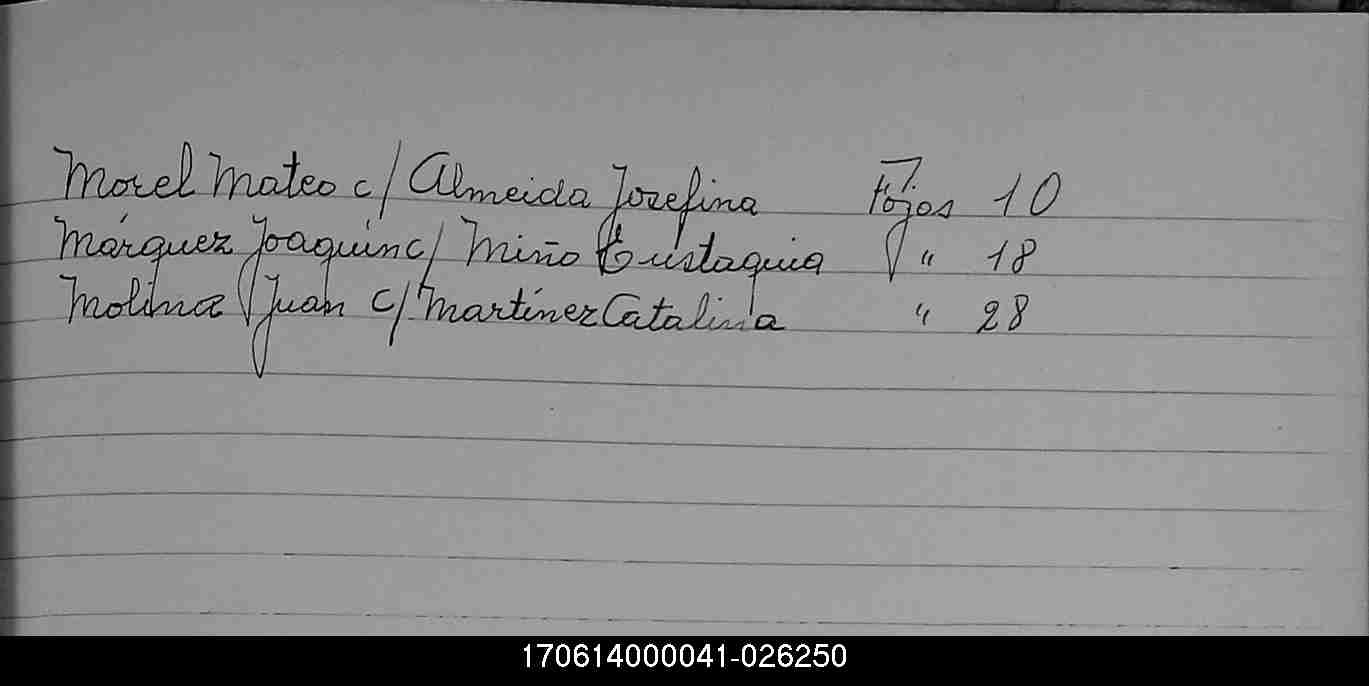 Morel Mateo c/ Almeida Josefina Fojas 10
Márquez Joaquín c/ Miño Eustaquia " 18
Molina Juan c/ Martínez Catalina " 28
170614000041-026250